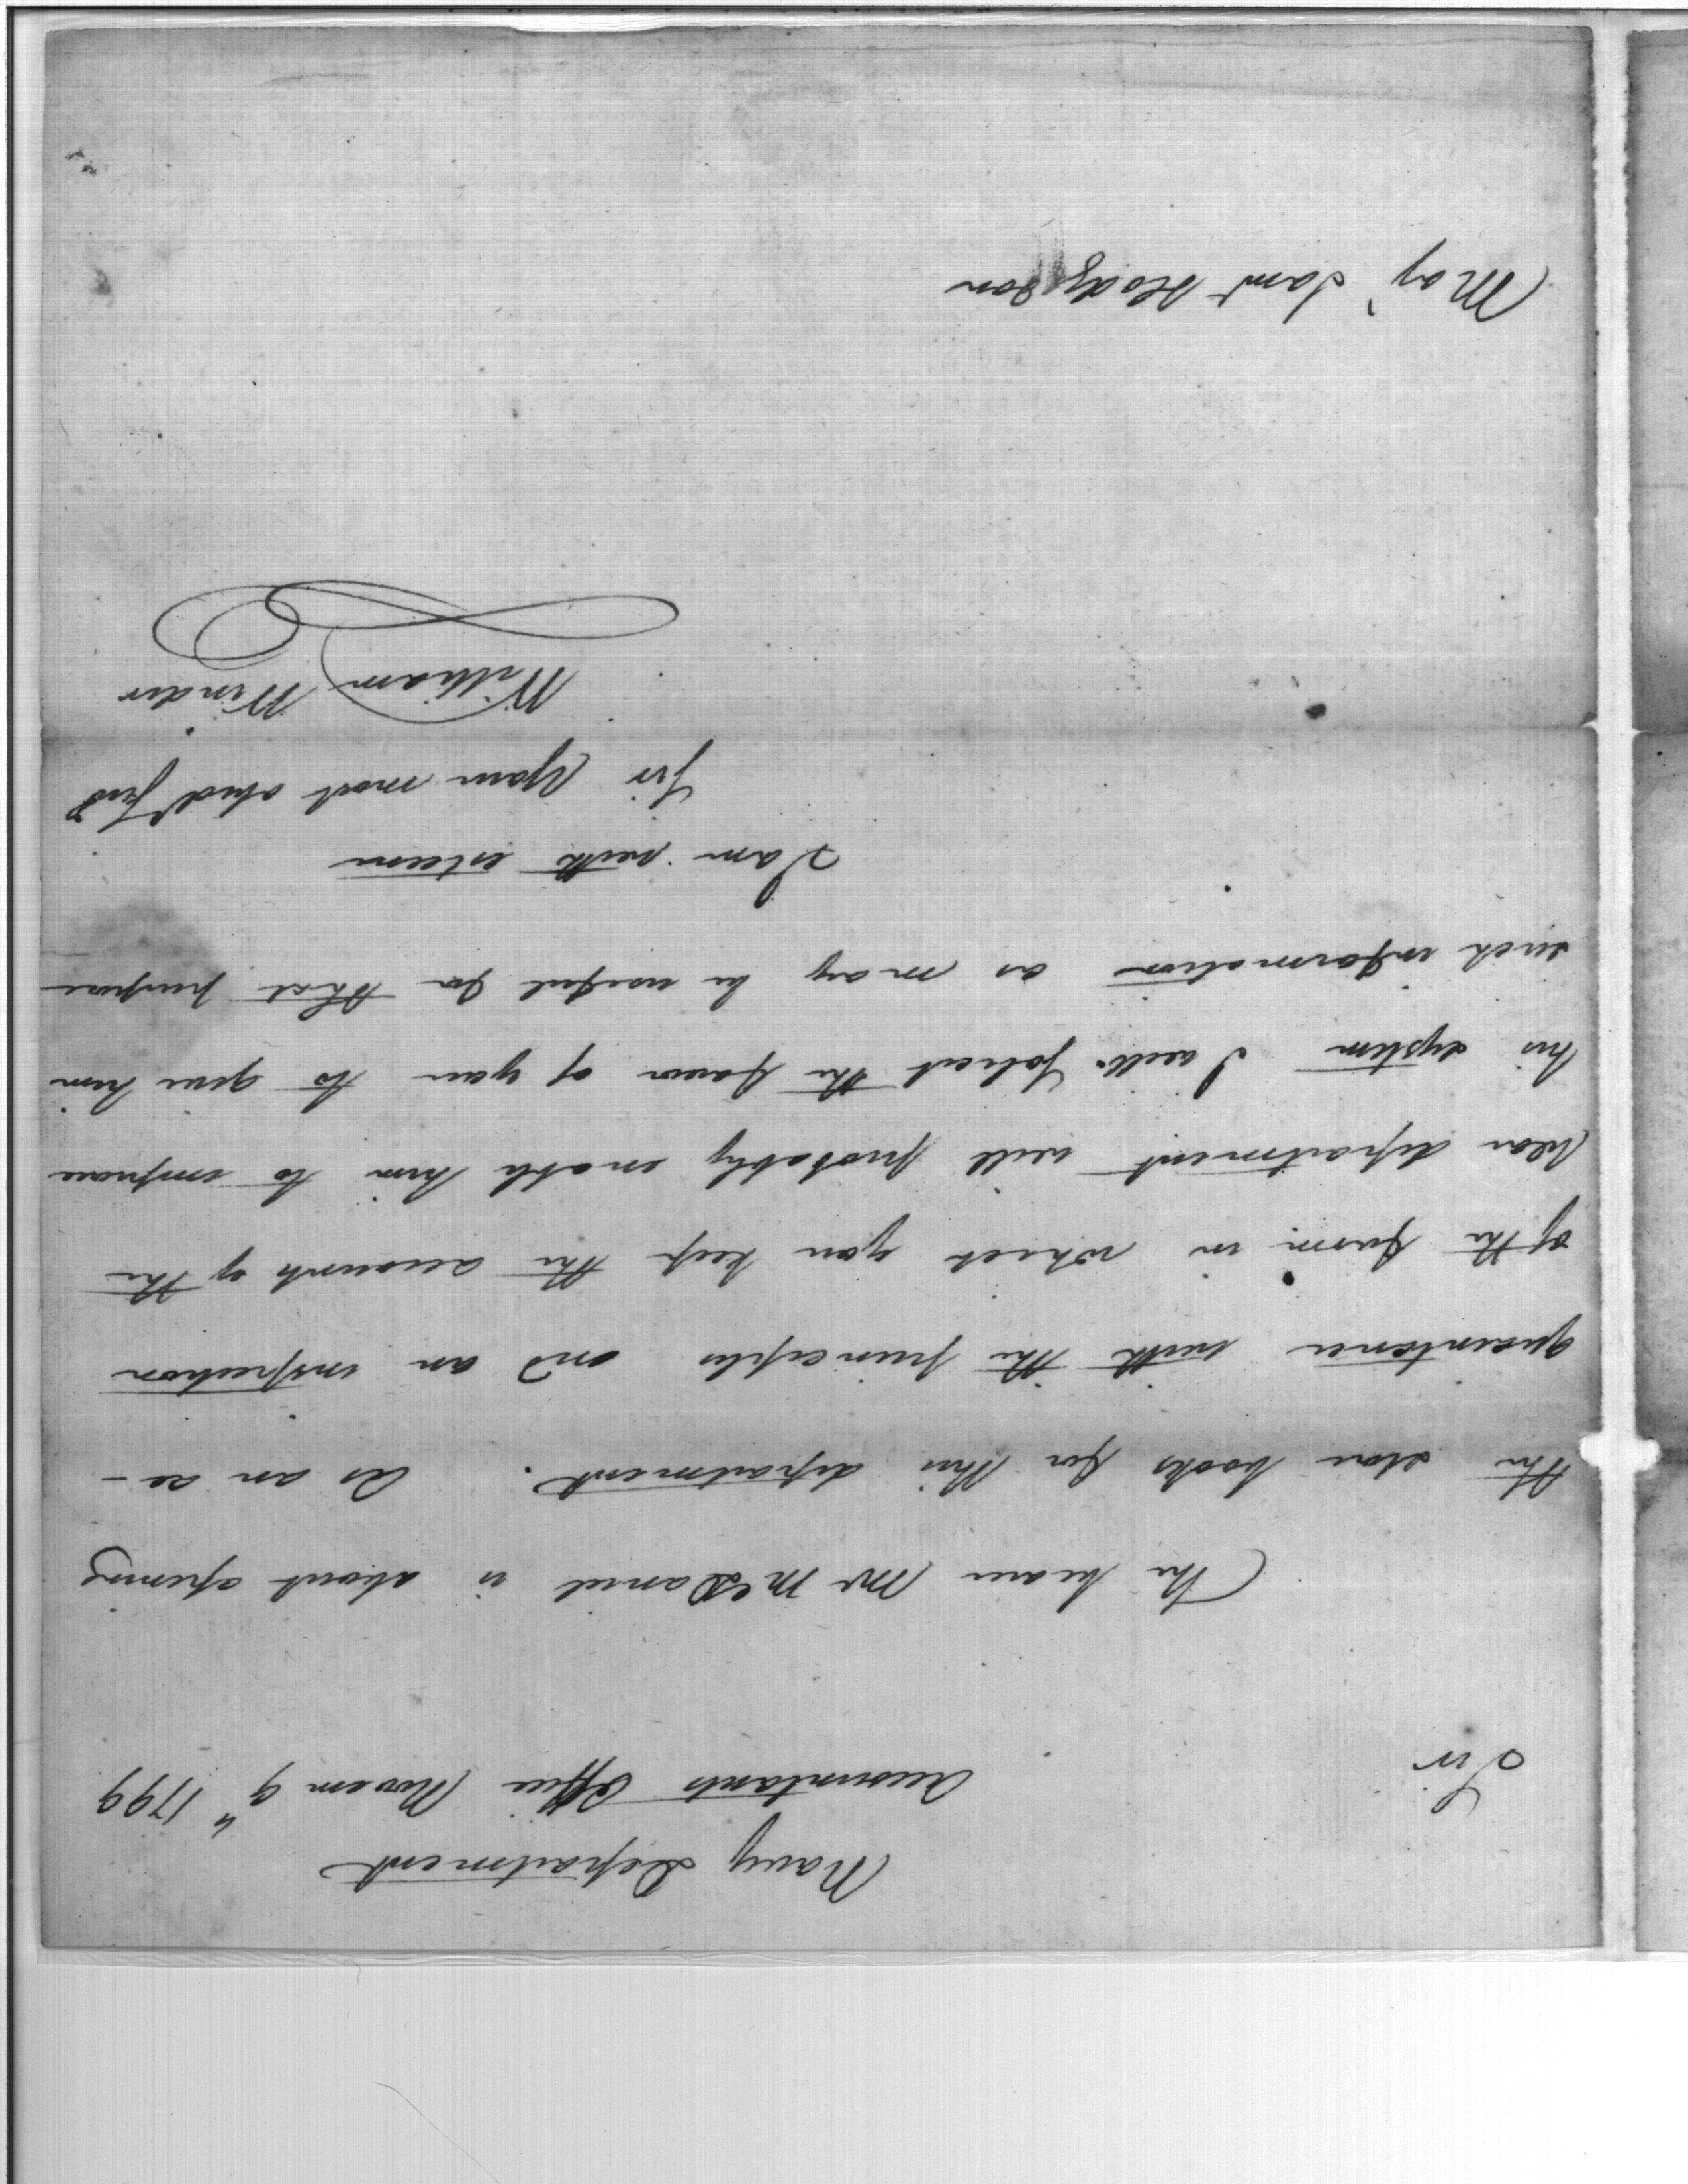 Navy Department
Accountants Office Novem 9" 1799
Sir
The bearer Mr McDaniel is about opening
the store books for this department. As an ac-
quaintance with the principles and an inspection
of the form in which you keep the accounts of the
War department will probably enable him to improve
his system I will solicit the favor of you to give him
such information as may be useful for that purpose
I am with esteem
Sir Your most obed Servt
William Winder
Majr Saml Hodgson